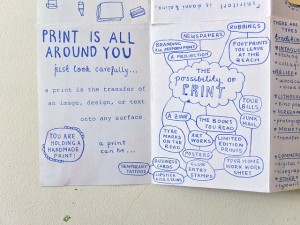 PRINT IS ALL
AROUND YOU
just look carefully...
a print is the transfer of
an image, design, or text
onto any surface
YOU ARE
HOLDING A
HANDMADE
PRINT!
a print
can be...
TEMPORARY
TATTOOS
NEWSPAPERS
RUBBINGS
BRANDING
A PROJECTION
FOOTPRINTS
YOU LEAVE
AT THE
BEACH
The
possibility of
PRINT
YOUR
BILLS
JUNK
MAIL
A ZINE
THE BOOKS
YOU READ
TYRE
MARKS ON
THE ROAD
ART
WORKS
LIMITED
EDITION
PRINTS
POSTERS
BUSINESS
CARDS
LIPSTICK
KISS STAINS
CLUB
ENTRY
STAMPS
YOUR HOME
WORK WORK
SHEET
THERE ARE
TYPES